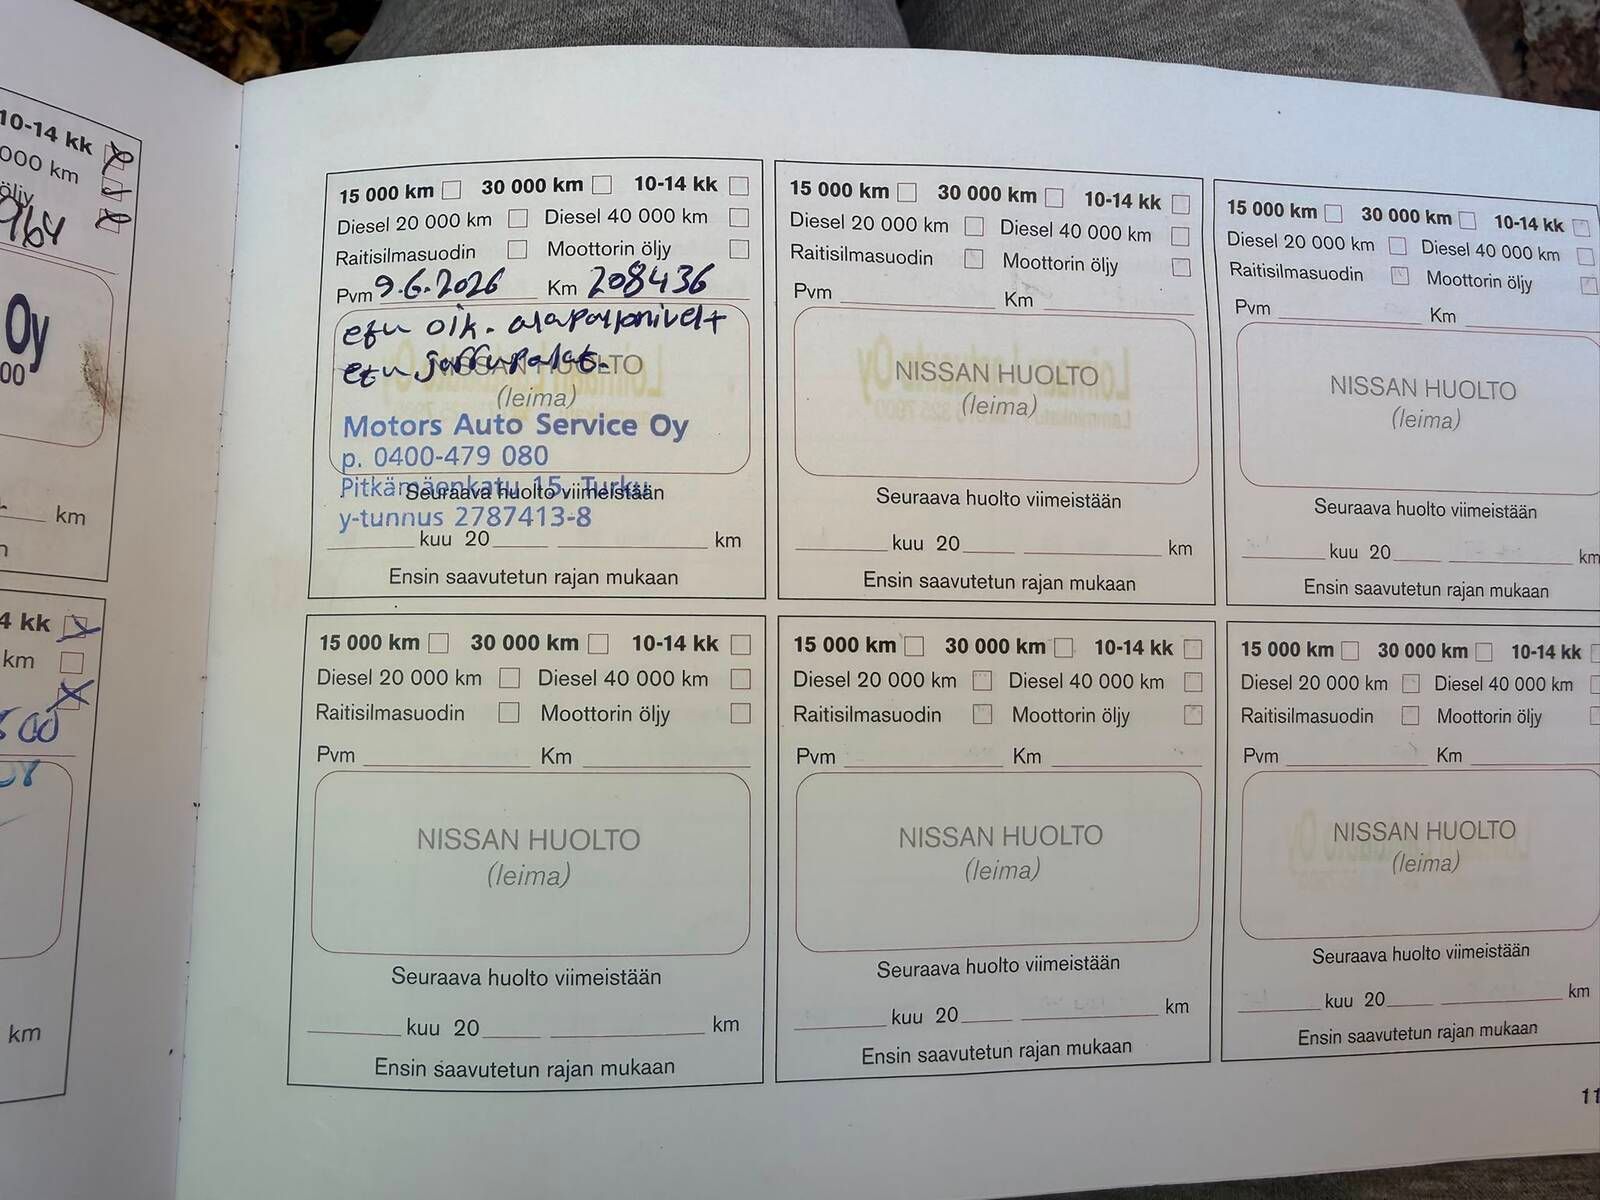 10-14 kk
000 km
öljy
964
Oy
00
km
4 kk
km
500
OY
km
15 000 km 30 000 km 10-14 kk
Diesel 20 000 km Diesel 40 000 km
Raitisilmasuodin Moottorin öljy
Pvm 9.6.2026 Km 208436
etu oik. alapallonivel +
etu jarrupalat.
NISSAN HUOLTO
(leima)
Motors Auto Service Oy
p. 0400-479 080
Pitkämäenkatu 15, Turku
Seuraava huolto viimeistään
y-tunnus 2787413-8
kuu 20 km
Ensin saavutetun rajan mukaan
15 000 km 30 000 km 10-14 kk
Diesel 20 000 km Diesel 40 000 km
Raitisilmasuodin Moottorin öljy
Pvm Km
NISSAN HUOLTO
(leima)
Seuraava huolto viimeistään
kuu 20 km
Ensin saavutetun rajan mukaan
15 000 km 30 000 km 10-14 kk
Diesel 20 000 km Diesel 40 000 km
Raitisilmasuodin Moottorin öljy
Pvm Km
NISSAN HUOLTO
(leima)
Seuraava huolto viimeistään
kuu 20 km
Ensin saavutetun rajan mukaan
15 000 km 30 000 km 10-14 kk
Diesel 20 000 km Diesel 40 000 km
Raitisilmasuodin Moottorin öljy
Pvm Km
NISSAN HUOLTO
(leima)
Seuraava huolto viimeistään
kuu 20 km
Ensin saavutetun rajan mukaan
15 000 km 30 000 km 10-14 kk
Diesel 20 000 km Diesel 40 000 km
Raitisilmasuodin Moottorin öljy
Pvm Km
NISSAN HUOLTO
(leima)
Seuraava huolto viimeistään
kuu 20 km
Ensin saavutetun rajan mukaan
15 000 km 30 000 km 10-14 kk
Diesel 20 000 km Diesel 40 000 km
Raitisilmasuodin Moottorin öljy
Pvm Km
NISSAN HUOLTO
(leima)
Seuraava huolto viimeistään
kuu 20 km
Ensin saavutetun rajan mukaan
11